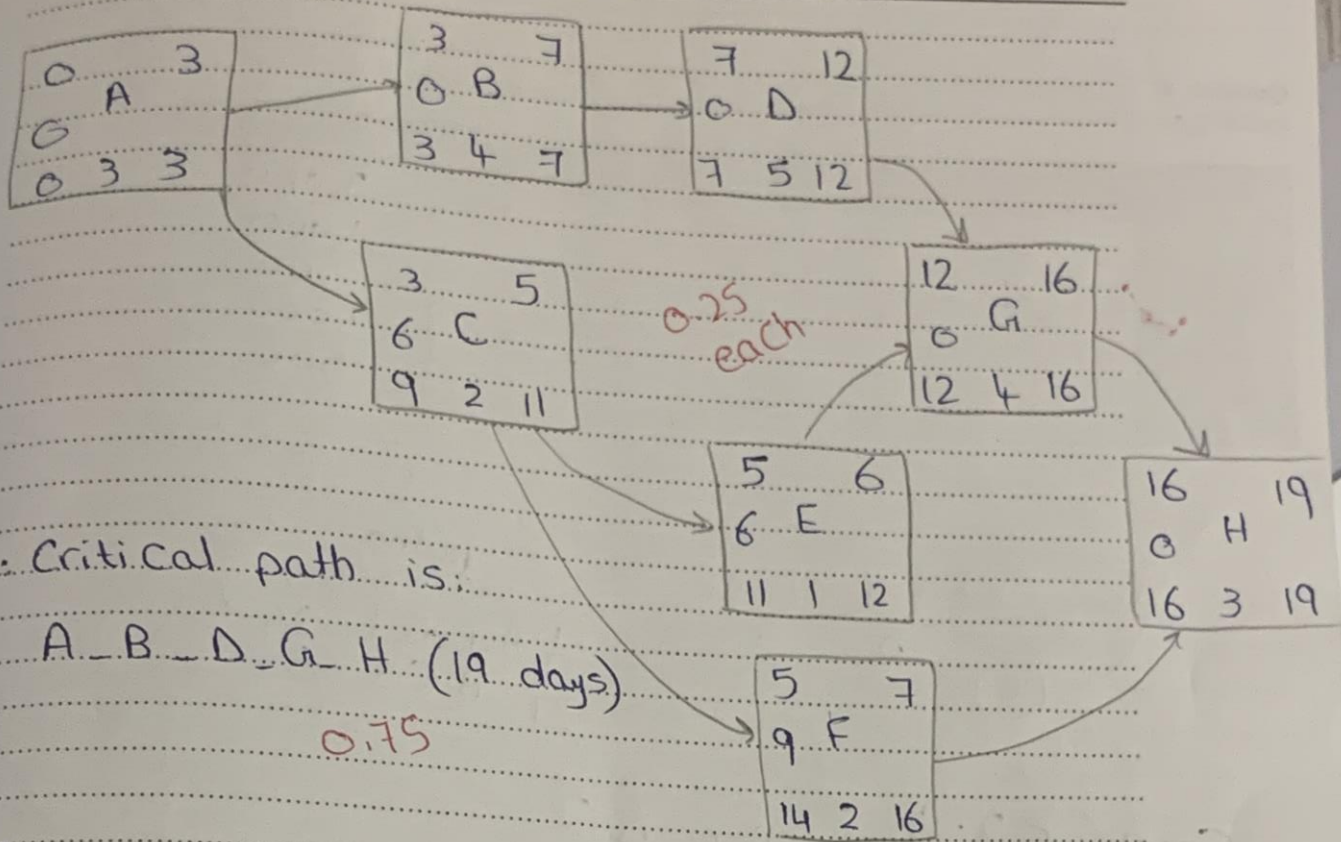 0 3
A
0
0 3 3
3 7
0 B
3 4 7
7 12
0 D
7 5 12
3 5
6 C
9 2 11
0.25
each
12 16
G
0
12 4 16
5 6
6 E
11 1 12
16 19
0 H
16 3 19
: Critical path is:
A_B_D_G_H (19 days)
0.75
5 7
9 F
14 2 16